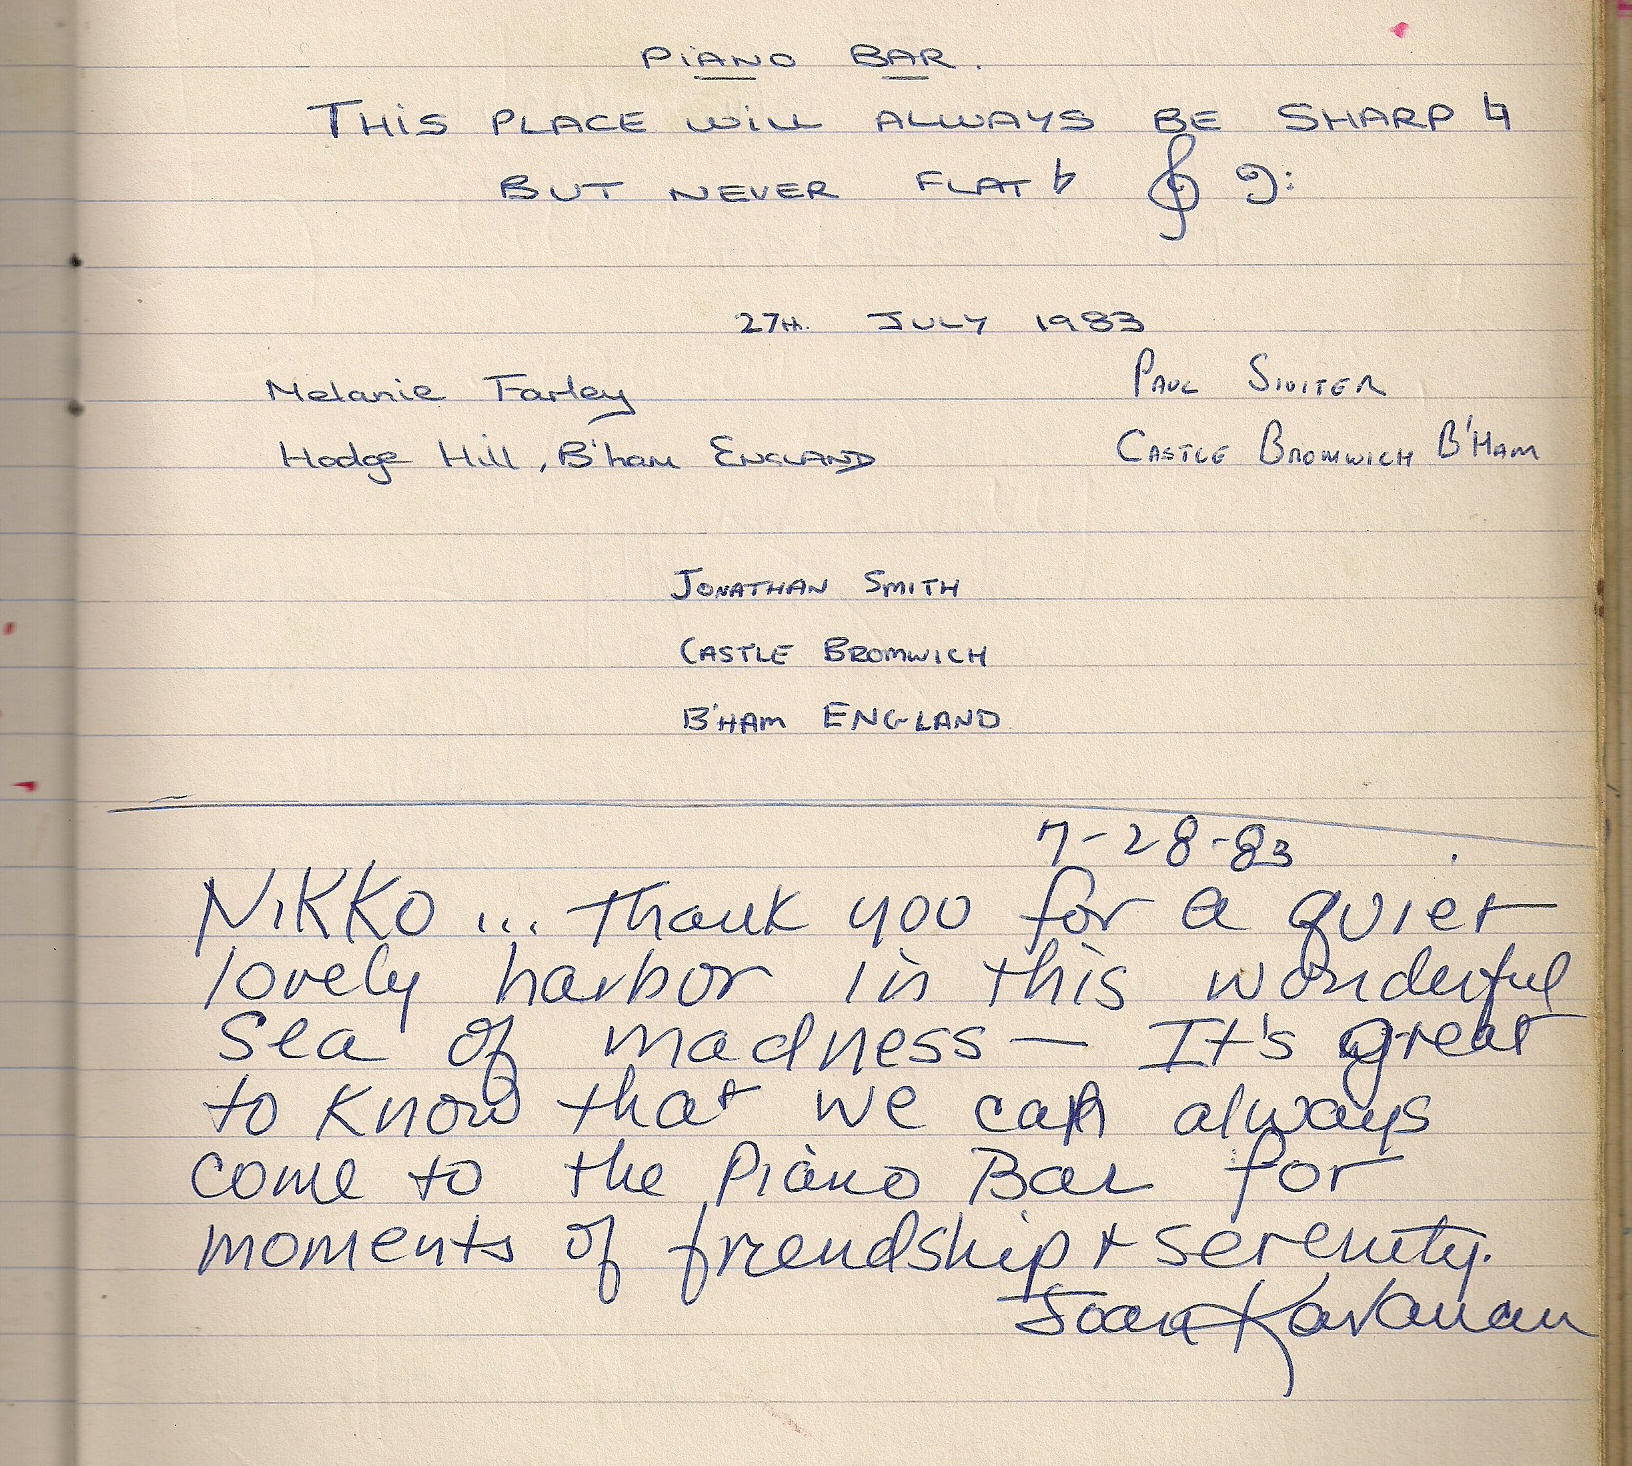 PIANO BAR.
THIS PLACE WILL ALWAYS BE SHARP ♮
BUT NEVER FLAT ♭
27TH. JULY 1983
Melanie Farley
Hodge Hill, B'ham ENGLAND
PAUL
CASTLE BROMWICH B'HAM
JONATHAN SMITH
CASTLE BROMWICH
B'HAM ENGLAND
7-28-83
NIKKO ... thank you for a quiet
lovely harbor in this wonderful
sea of madness — It's great
to know that we can always
come to the Piano Bar for
moments of friendship + serenity.
Joan